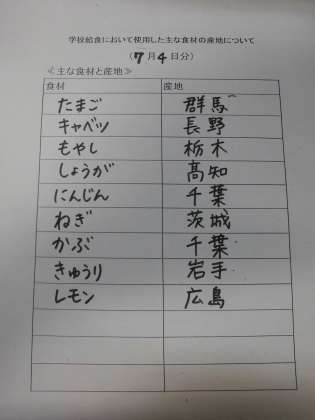 学校給食において使用した主な食材の産地について
(7月4日分)
≪主な食材と産地≫
食材 産地
たまご 群馬
キャベツ 長野
もやし 栃木
しょうが 高知
にんじん 千葉
ねぎ 茨城
かぶ 千葉
きゅうり 岩手
レモン 広島